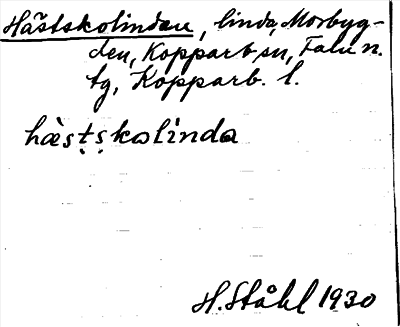 Hästskolindan, linda, Morbyg-
den, Kopparb. sn, Falu n.
tg, Kopparb. l.
hàsṭṣkolinda
H. Ståhl 1930